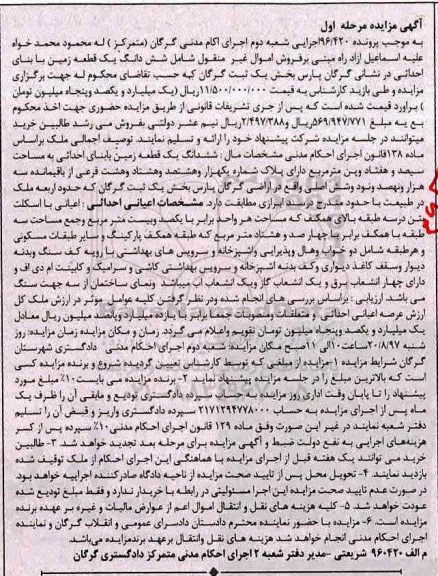 آگهی مزایده مرحله اول
به موجب پرونده ۹۶/۴۲۰اجرایی شعبه دوم اجرای احکام مدنی گرگان (متمرکز ) له محمود محمد خواه
علیه اسماعیل ازاد راه مبنی برفروش اموال غیر منقول شامل شش دانگ یک قطعه زمین با بنای
احداثی در نشانی گرگان پارس بخش یک ثبت گرگان که حسب تقاضای محکوم له جهت برگزاری
مزایده و طی بازید کارشناس به قیمت ۱۱/۵۰۰/۰۰۰/۰۰۰ریال (یک میلیارد و یکصد وپنجاه میلیون تومان
) براورد قیمت شده است که پس از جری تشریفات قانونی از طریق مزایده حضوری جهت اخذ محکوم
به به مبلغ ۵۶۹/۹۴۷/۷۷۱ریال و ۲/۴۹۷/۳۸۸ریال نیم عشر دولتی بفروش می رشد طالبین خرید
میتوانند در جلسه مزایده شرکت پیشنهاد خود را ارائه و تسلیم نمایند. توصیف اجمالی ملک براساس
ماده ۱۳۸قانون اجرای احکام مدنی مشخصات مال : ششدانگ یک قطعه زمین بابنای احداثی به مساحت
سیصد و هفتاد وین مترمربع دارای پلاک شماره یکهزار وهشتصد وهشتاد وهشت فرعی از باقیمانده سه
هزار ونهصد ونود وشش اصلی واقع در اراضی گرگان پارس بخش یک ثبت گرگان که حدود اربعه ملک
در طبیعت با حدود مندرج در سند ابرازی مطابقت دارد. مشخصات اعیانی احداثی : اعیانی با اسکلت
بتن درسه طبقه بالای همکف که مساحت هر واحد برابر با یکصد وبیست متر مربع وجمع مساحت سه
طبقه با همکف برابر با چهار صد و هشتاد متر مربع که طبقه همکف پارکینگ و سایر طبقات مسکونی
و هرطبقه شامل دو خواب وهال وپذیرایی واشپزخانه و سرویس های بهداشتی با رویه کف سنگ وبدنه
دیوار وسقف کاغذ دیواری وکف بدنه اشپزخانه و سرویس بهداشتی کاشی و سرامیک و کابینت ام دی اف و
دارای چهار انشعاب برق و یک انشعاب گاز ویک انشعاب آب میباشد ونمای ساختمان از سه جهت سنگ
می باشد. ارزیابی : براساس بررسی های انجام شده ودر نظر گرفتن کلیه عوامل موثر در ارزش ملک کل
ارزش عرصه اعیانی احداثی و متعلقات ومنصوبات جمعا برابر با یازده میلیارد وپانصد میلیون ریال معادل
یک میلیارد و یکصد وپنجاه میلیون تومان تقویم واعلام می گردد. زمان و مکان مزایده زمان مزایده: روز
شنبه ۲۰/۸/۹۷ساعت ۱۰الی ۱۱صبح مکان مزایده: شعبه دوم اجرای احکام مدنی دادگستری شهرستان
گرگان شرایط مزایده ۱-مزایده از مبلغی که توسط کارشناس تعیین گردیده شروع و برنده مزایده کسی
است که بالاترین مبلغ را در جلسه مزایده پیشنهاد نماید ۲- برنده مزایده می بایست ۱۰٪ مبلغ مورد
پیشنهاد را تا پایان وقت اداری روز مزایده به حساب سپرده دادگستری تودیع و مابقی آن را ظرف یک
ماه پس از اجرای مزایده به حساب ۲۱۷۱۲۹۴۷۷۸۰۰۰ سپرده دادگستری واریز و قبض آن را تسلیم
دفتر شعبه نمایند در غیر این صورت وفق ماده ۱۲۹ قانون اجرای احکام مدنی۱۰٪ سپرده پس از کسر
هزینه‌های اجرایی به نفع دولت ضبط و آگهی مزایده برای مرحله بعد تجدید خواهد شد. ۳- طالبین
خرید می توانند یک هفته قبل از اجرای مزایده با هماهنگی این اجرای احکام از ملک توقیف شده
بازدید نمایند. ۴- تحویل محل پس از تایید صحت مزایده از ناحیه دادگاه صادرکننده اجراییه خواهد بود.
در صورت عدم تایید صحت مزایده این اجرا مسئولیتی در رابطه با خریدار ندارد و فقط مبلغ تودیع شده
عودت خواهد شد. ۵- کلیه هزینه های نقل و انتقال اموال اعم از عوارض مالیات و غیره بر عهده برنده
مزایده است. ۶- مزایده با حضور نماینده محترم دادستان دادسرای عمومی و انقلاب گرگان و نماینده
اجرای احکام مدنی انجام خواهد شد هزینه های نقل وانتقال برعهد برندمزایده می‌باشد.
م الف ۹۶۰۴۲۰ شریعتی -مدیر دفتر شعبه ۲ اجرای احکام مدنی متمرکز دادگستری گرگان